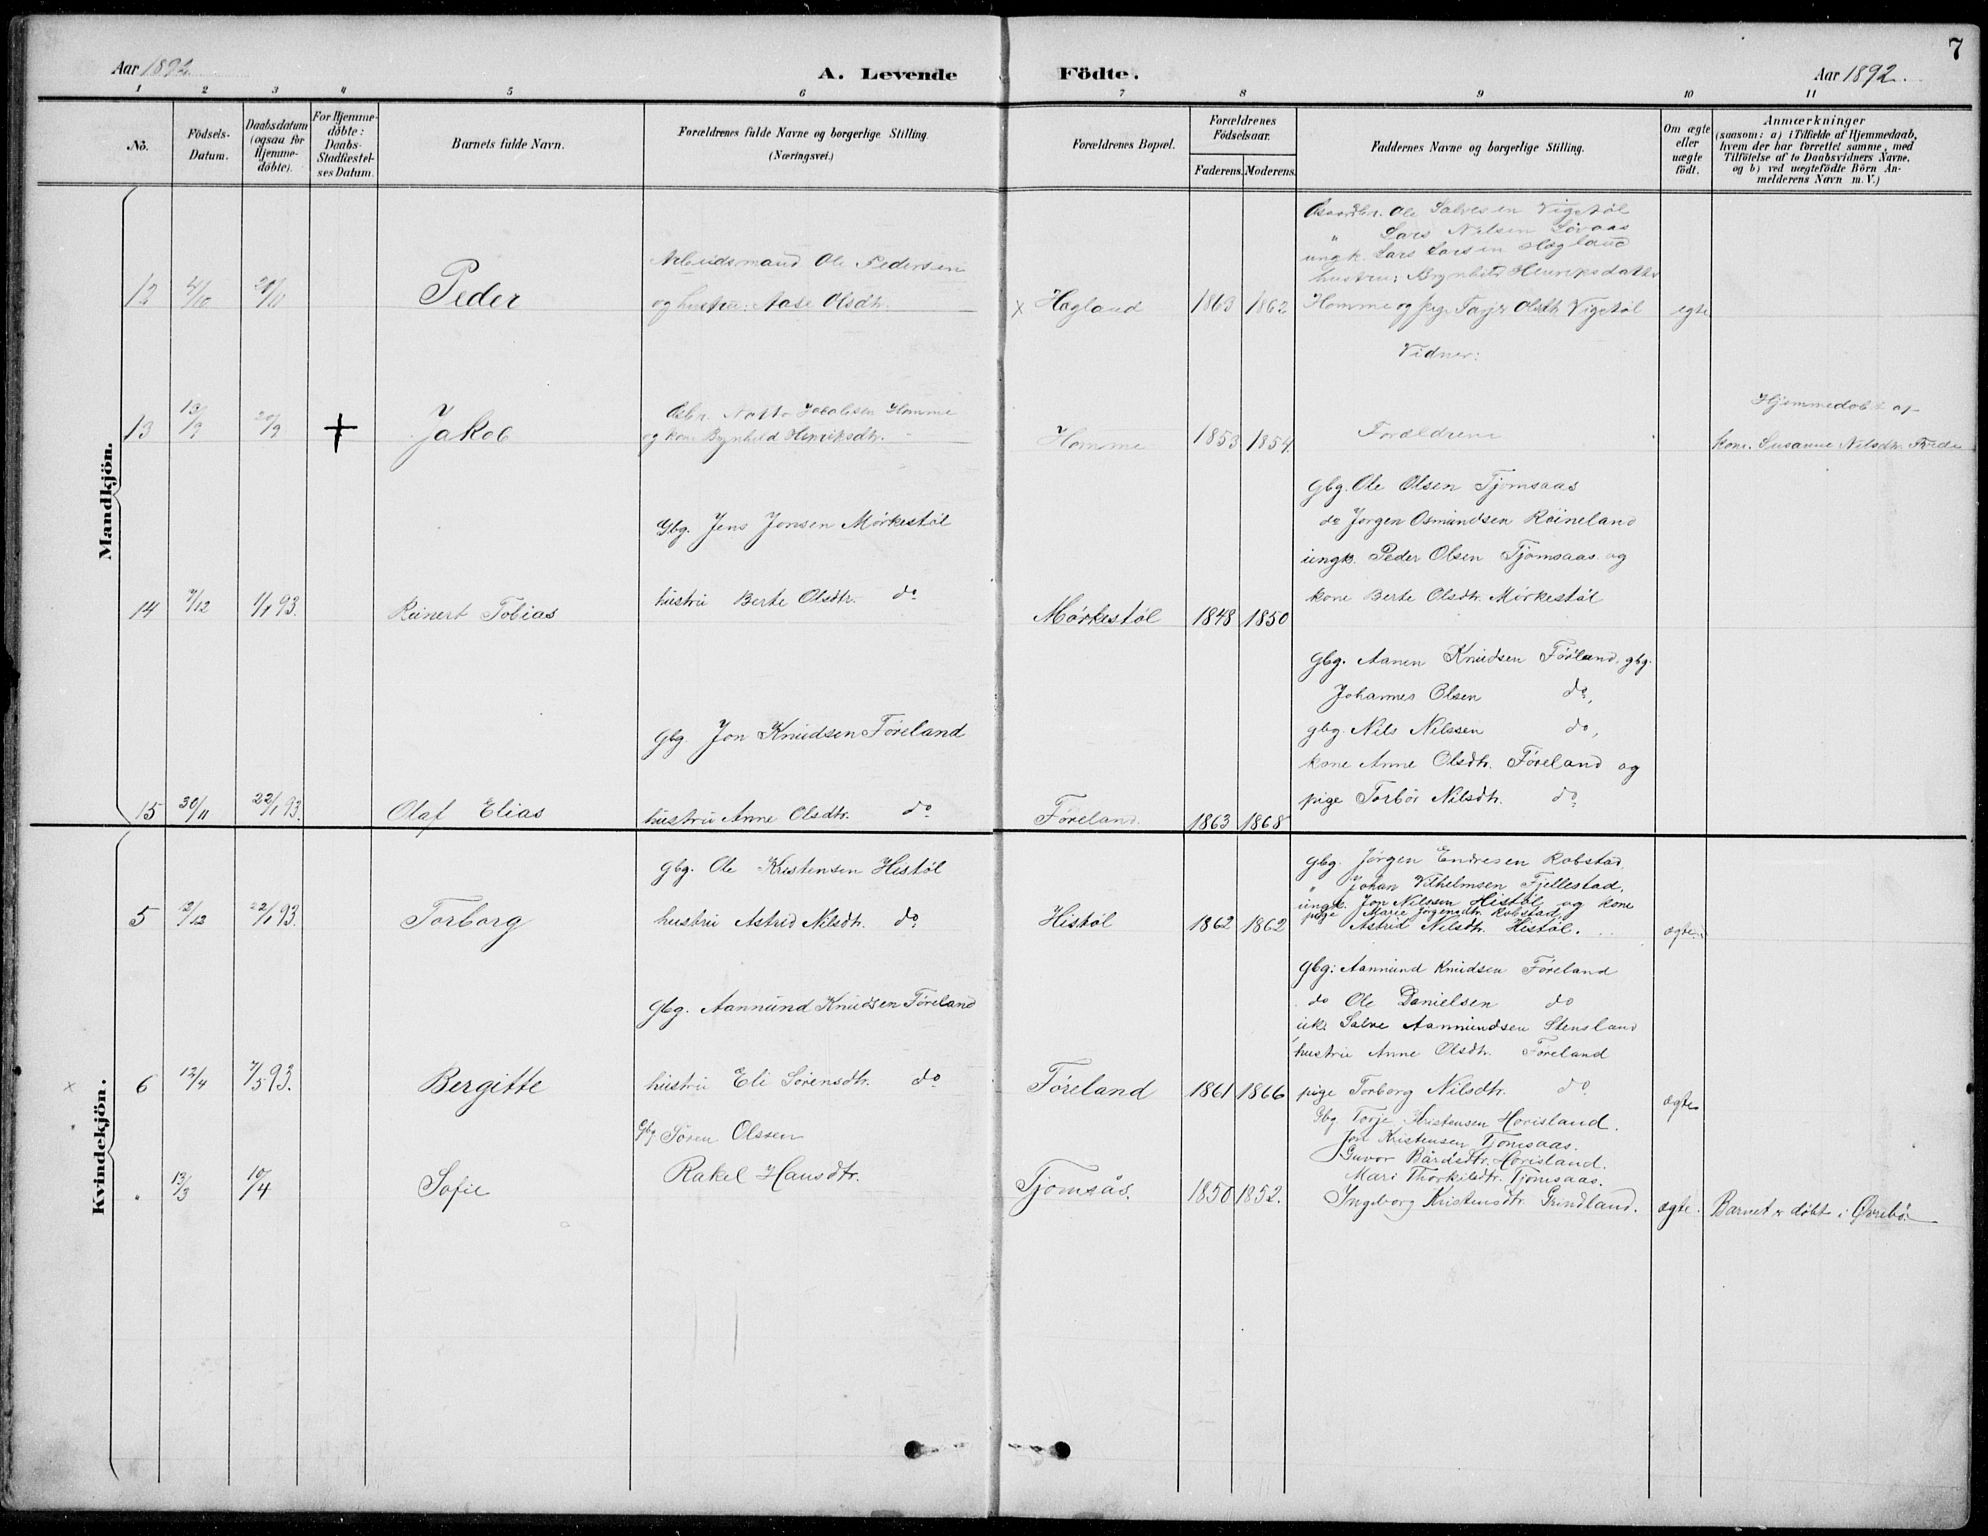 7
Aar 1892
A. Levende
Födte.
Aar 1892.
1 2 3 4 5 6 7 8 9 10 11
No.
Födsels-
Datum.
Daabsdatum
(ogsaa for
Hjemme-
döbte).
For Hjemme-
döbte:
Daabs-
Stadfæstel-
ses Datum.
Barnets fulde Navn.
Forældrenes fulde Navne og borgerlige Stilling.
(Næringsvei.)
Forældrenes Bopæl.
Forældrenes
Födselsaar.
Faderens.
Moderens.
Faddernes Navne og borgerlige Stilling.
Om ægte
eller
uægte
födt.
Anmærkninger
(saasom: a) i Tilfælde af Hjemmedaab,
hvem der har forrettet samme, med
Tilföielse af to Daabsvidners Navne.
og b) ved uægtefödte Börn An-
melderens Navn m. V.)
Mandkjön.
12
Peder
Arbeidsmand Ole Pedersen
og hustru: Aase Olsdtr.
x Hagland
1863
1862
Ole Salvesen Vigstøl
" Lars Nilsen
ungk. Lars Larsen Hagland
hustru: Brynhild Henriksdatter
Homme og pige Olsdtr Vigstøl
egte
13
13/9
20/9
+
Jakob
Jakobsen Homme
og kone Brynhild Henriksdtr.
Homme
1853
1854.
Vidner:
Forældrene
Hjemmedøbt af
kone. Susanne Nilsdtr.
14
7/12
1/1 93.
Reinert Tobias
Gbg. Jens Jonsen Mørkestøl
hustru Berte Olsdtr. do
Mørkestøl
1848
1850
Gbg. Ole Olsen Tjomsaas
do Jørgen Osmundsen Røineland
ungk. Peder Olsen Tjomsaas og
kone Berte Olsdtr. Mørkestøl
15
30/11
22/1 93.
Olaf Elias
Gbg. Jon Knudsen Føreland
hustru Anne Olsdtr. do
Føreland.
1863
1868
Gbg. Aanen Knudsen Føreland, gbg.
Johannes Olsen do,
gbg. Nils Nilssen do,
kone Anne Olsdtr. Føreland og
pige Torbor Nilsdtr. do
Kvindekjön.
5
2/12
22/1 93.
Torborg
Gbg. Ole Kristensen Histøl
hustru Astrid Nilsdtr. do
Histøl
1862
1862
Gbg. Jørgen Endresen Robstad
" Johan Vilhelmsen Fjellestad,
ungk. Jon Nilssen Histøl og kone
pige Marie Jørgensdtr. Robstad,
Astrid Nilsdtr. Histøl.
ægte
x 6
12/4
7/5 93.
Bergitte
Gbg. Aanmund Knudsen Føreland
hustru Eli Sørensdtr. do
Føreland
1861
1866
Gbg: Aanmund Knudsen Føreland
do Ole Danielsen do
uk. Salve Aanmundsen Stensland
hustru Anne Olsdtr. Føreland
pige Torborg Nilsdtr. do
ægte
"
13/3
10/4
Sofie
Gbg Søren Olssen
Rakel Hansdtr.
Tjomsås.
1850
1852.
Gbg Torje Kristensen Horisland.
Jon Kristensen Tjomsaas.
Guvor Bårdsdtr. Horisland.
Mari Thorkildtr. Tjomsaas.
Ingeborg Kristensdtr. Grindland.
ægte.
Barnet er døbt i Øvrebø.